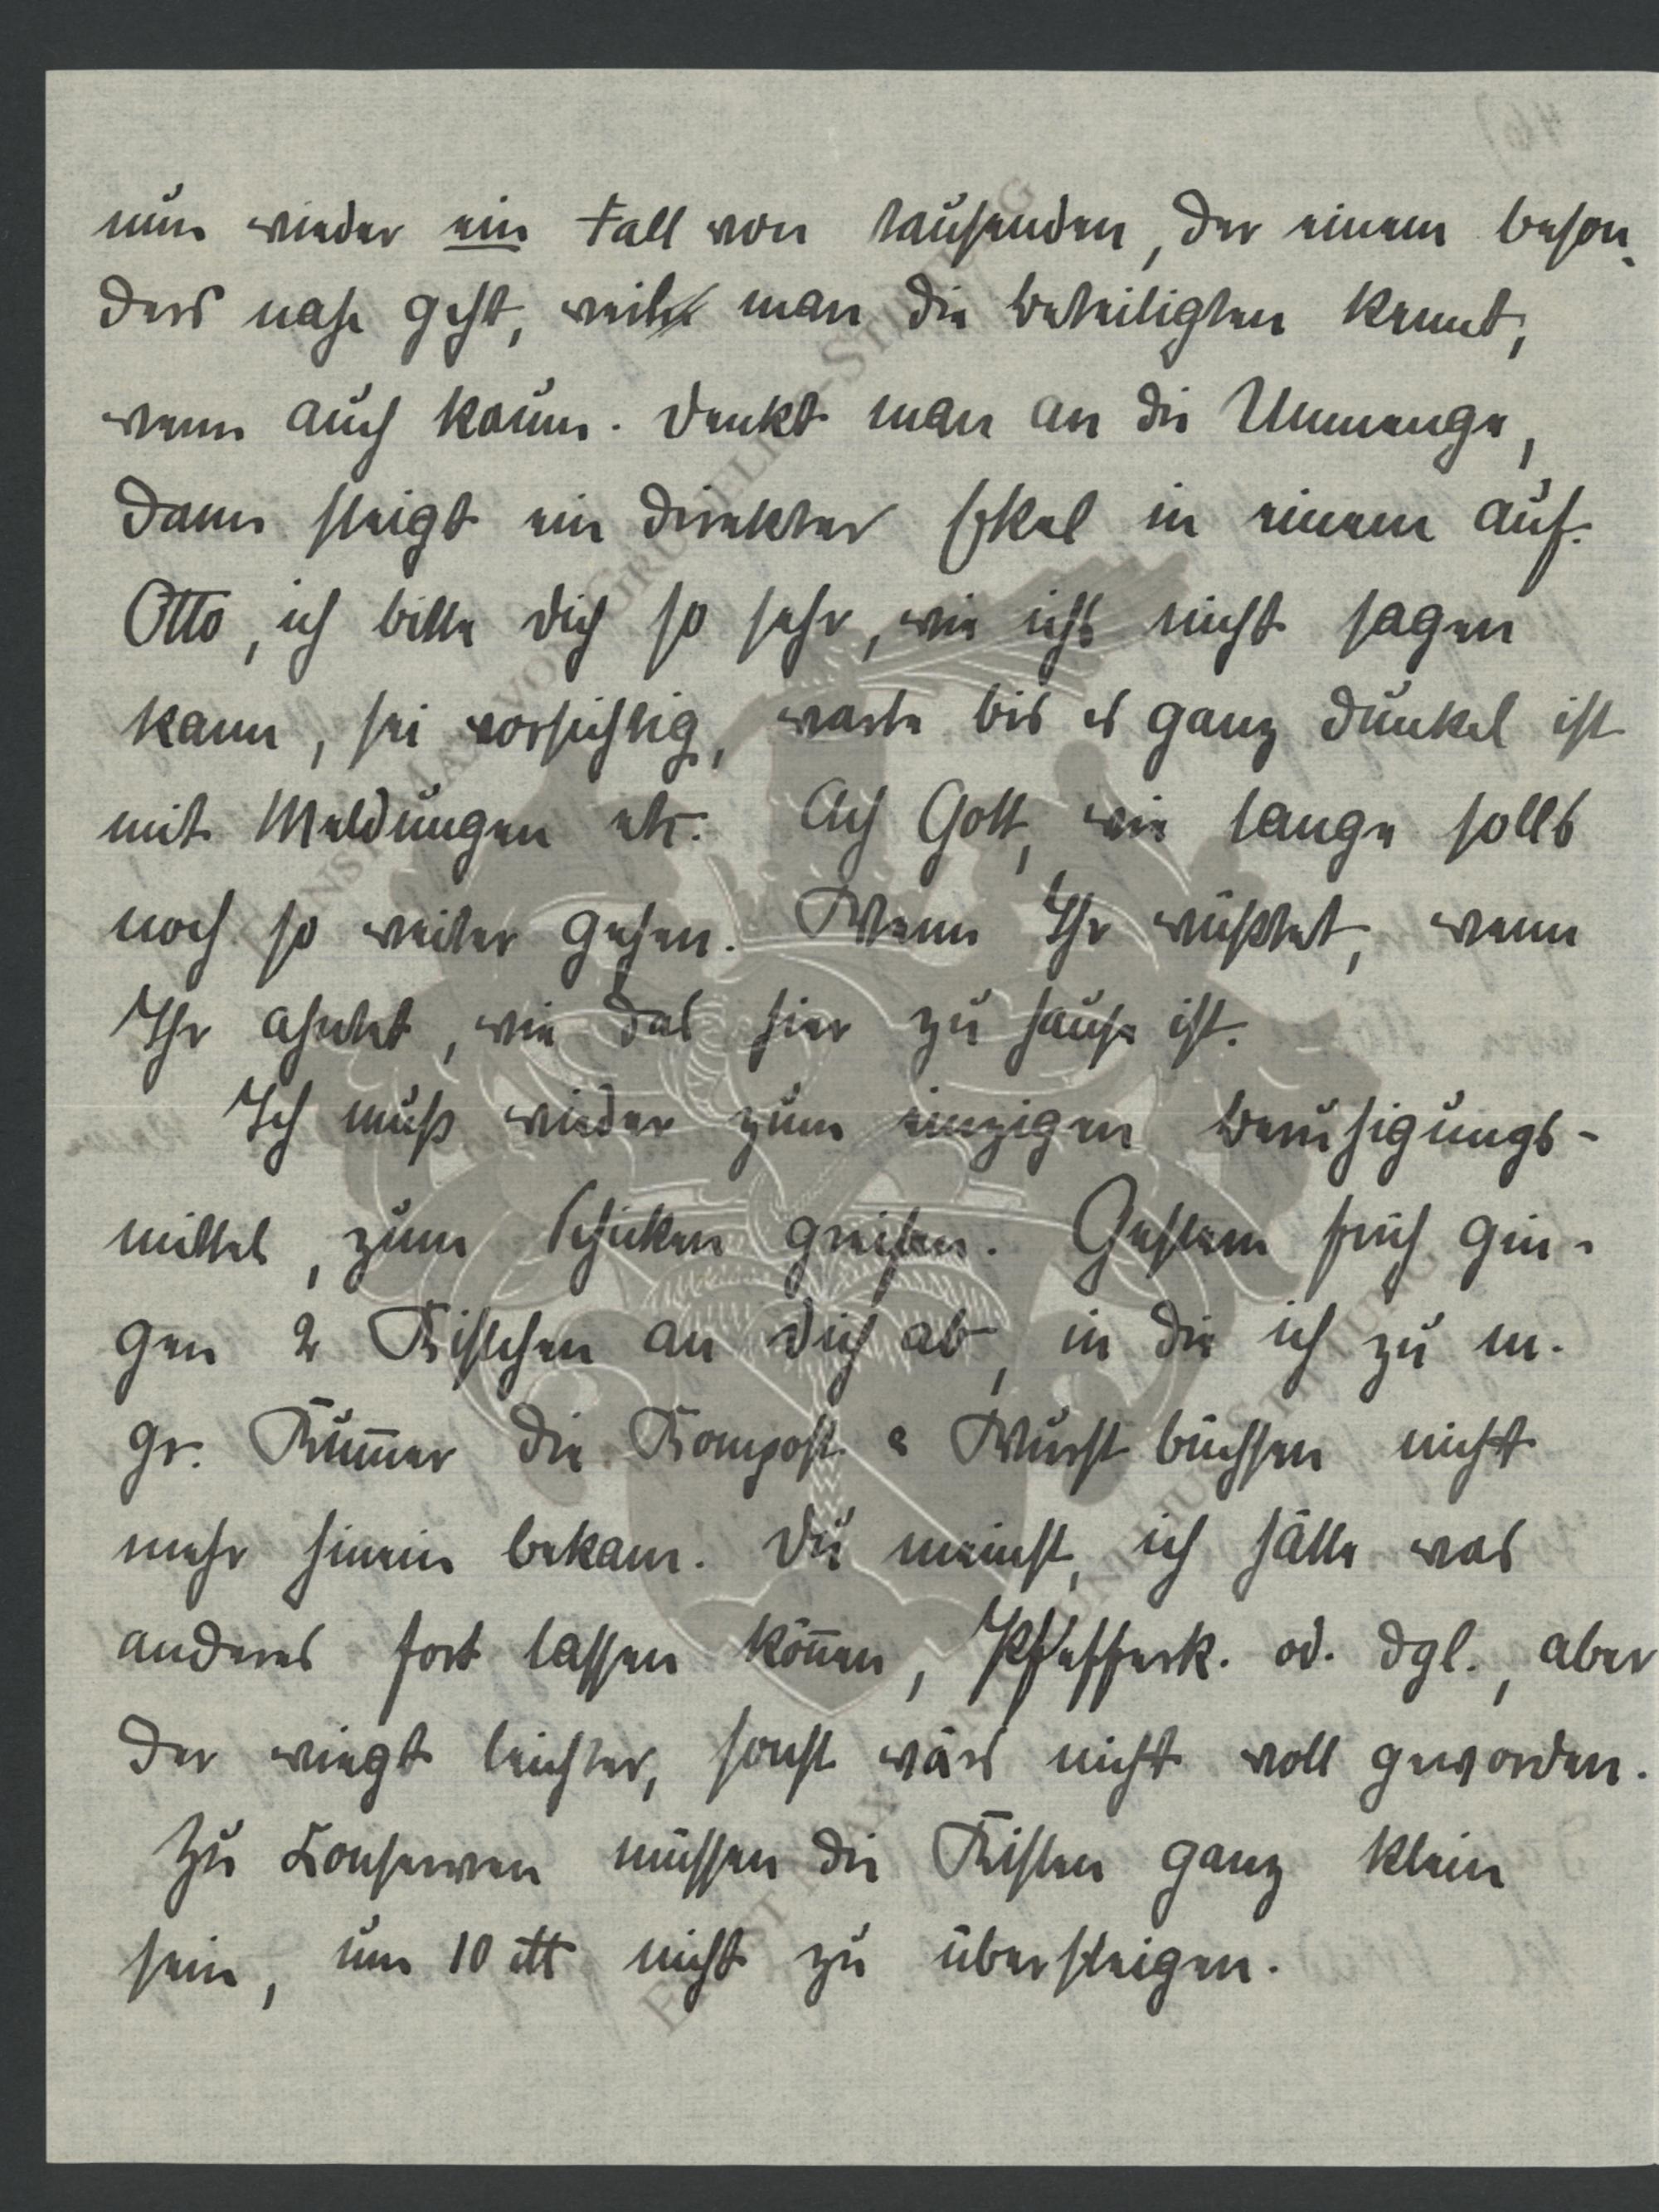 nun wieder ein Fall von tausenden, der einem beson-
ders nahe geht, weil man die Beteiligten kennt,
wenn auch kaum. Denkt man an die Unmenge,
dann steigt ein direkter Ekel in einem auf.
Otto, ich bitte Dich so sehr, wie ichs nicht sagen
kann, sei vorsichtig, warte bis es ganz dunkel ist
mit Meldungen etc. Ach Gott, wie lange solls
noch so weiter gehen. Wenn Ihr wüßtet, wenn
Ihr ahntet, wie das hier zu hause ist.
Ich muß wieder zum einzigen Beruhigungs-
mittel, zum Schicken greifen. Gestern früh gin-
gen 2 Kistchen an Dich ab, in die ich zu m.
gr. Kum̅er die Kompost & Wurst büchsen nicht
mehr hinein bekam. Du meinst, ich hätte was
anderes fort lassen kön̅en, Pfefferk. od. dgl., aber
der wiegt leichter, sonst wärs nicht voll geworden.
Zu Konserven müssen die Kisten ganz klein
sein, um 10 ℔ nicht zu übersteigen.